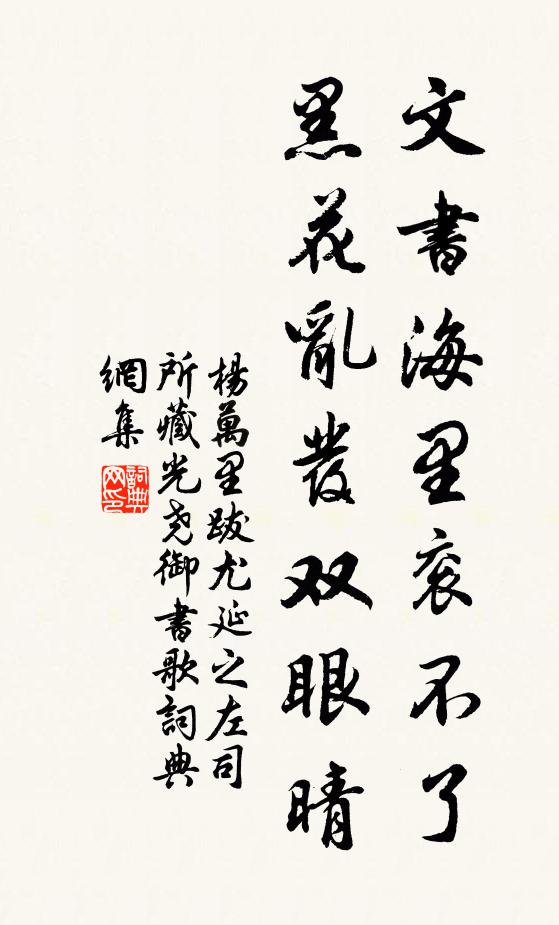 文書海里衮不了
黑花亂發双眼晴
楊萬里跋尤延之左司
所藏光尧御書歌詞典
網集
詞典
网印